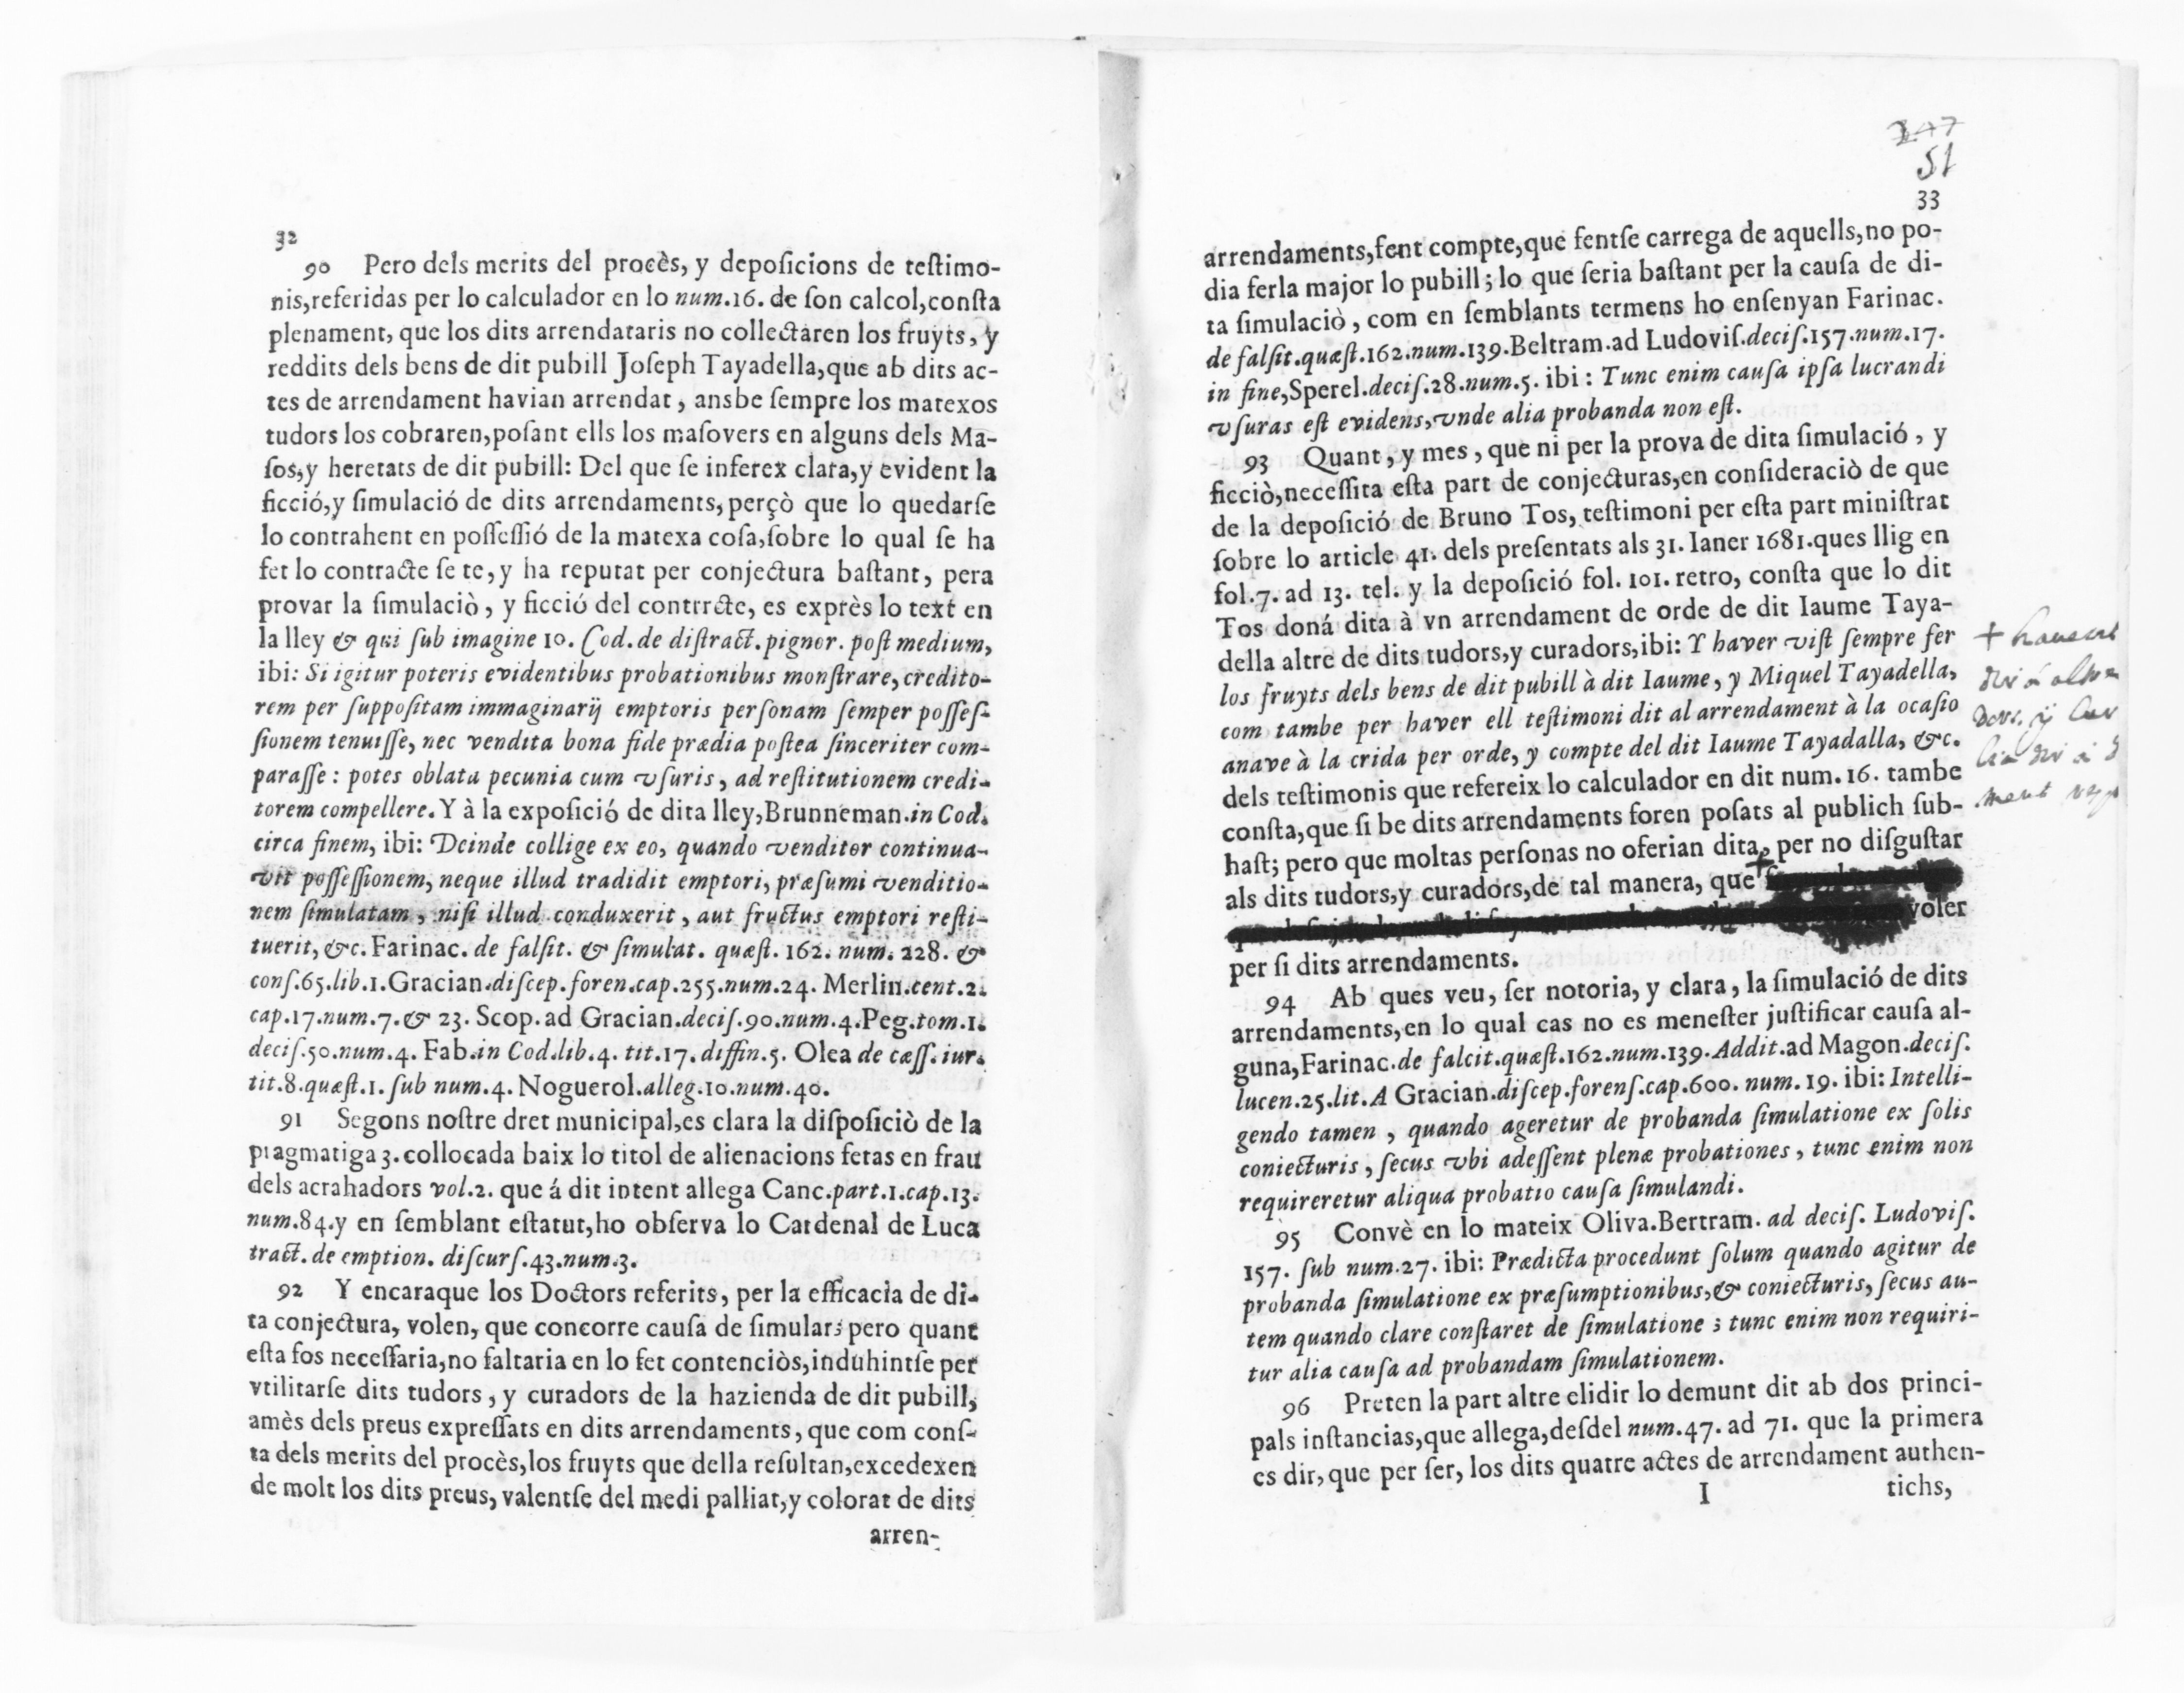 32
90 Pero dels merits del procès, y deposicions de testimo-
nis,referidas per lo calculador en lo num.16. de son calcol,consta
plenament, que los dits arrendataris no collectàren los fruyts, y
reddits dels bens de dit pubill Joseph Tayadella,que ab dits ac-
tes de arrendament havian arrendat, ansbe sempre los matexos
tudors los cobraren,posant ells los masovers en alguns dels Ma-
sos,y heretats de dit pubill: Del que se inferex clara,y evident la
ficció,y simulació de dits arrendaments, perçò que lo quedarse
lo contrahent en possessió de la matexa cosa,sobre lo qual se ha
fet lo contracte se te, y ha reputat per conjectura bastant, pera
provar la simulaciò, y ficció del contrrcte, es exprès lo text en
la lley & qui sub imagine 10. Cod. de distract. pignor. post medium,
ibi: Si igitur poteris evidentibus probationibus monstrare, credito-
rem per suppositam immaginarij emptoris personam semper posses-
sionem tenuisse, nec vendita bona fide prædia postea sinceriter com-
parasse: potes oblata pecunia cum vsuris, ad restitutionem credi-
torem compellere. Y à la exposició de dita lley,Brunneman.in Cod.
circa finem, ibi: Deinde collige ex eo, quando venditor continua-
vit possessionem, neque illud tradidit emptori, præsumi venditio-
nem simulatam, nisi illud conduxerit, aut fructus emptori resti-
tuerit, &c. Farinac. de falsit. & simulat. quæst. 162. num. 228. &
cons.65.lib.1.Gracian.discep.foren.cap.255.num.24. Merlin.cent.2.
cap.17.num.7.& 23. Scop.ad Gracian.decis.90.num.4.Peg.tom.1.
decis.50.num.4. Fab.in Cod.lib.4. tit.17. diffin.5. Olea de cæss. iur.
tit.8.quæst.1. sub num.4. Noguerol.alleg.10.num.40.
91 Segons nostre dret municipal,es clara la disposiciò de la
pragmatiga 3. collocada baix lo titol de alienacions fetas en frau
dels acrahadors vol.2. que á dit intent allega Canc.part.1.cap.13.
num.84.y en semblant estatut,ho observa lo Cardenal de Luca
tract. de emption. discurs.43.num.3.
92 Y encaraque los Doctors referits, per la efficacia de di-
ta conjectura, volen, que concorre causa de simular; pero quant
esta fos necessaria,no faltaria en lo fet contenciòs,induhintse per
vtilitarse dits tudors, y curadors de la hazienda de dit pubill,
amès dels preus expressats en dits arrendaments, que com cons-
ta dels merits del procès,los fruyts que della resultan,excedexen
de molt los dits preus, valentse del medi palliat,y colorat de dits
arren-
247
51
33
arrendaments,fent compte,que fentse carrega de aquells,no po-
dia ferla major lo pubill; lo que seria bastant per la causa de di-
ta simulaciò, com en semblants termens ho ensenyan Farinac.
de falsit.quæst.162.num.139.Beltram.ad Ludovis.decis.157.num.17.
in fine,Sperel.decis.28.num.5. ibi: Tunc enim causa ipsa lucrandi
vsuras est evidens,vnde alia probanda non est.
93 Quant, y mes, que ni per la prova de dita simulació, y
ficciò,necessita esta part de conjecturas,en consideraciò de que
de la deposició de Bruno Tos, testimoni per esta part ministrat
sobre lo article 41. dels presentats als 31. Ianer 1681.ques llig en
fol.7. ad 13. tel. y la deposició fol. 101. retro, consta que lo dit
Tos doná dita à vn arrendament de orde de dit Iaume Taya-
della altre de dits tudors,y curadors,ibi: Y haver vist sempre fer
los fruyts dels bens de dit pubill à dit Iaume, y Miquel Tayadella,
com tambe per haver ell testimoni dit al arrendament à la ocasio
anave à la crida per orde, y compte del dit Iaume Tayadalla, &c.
dels testimonis que refereix lo calculador en dit num. 16. tambe
consta,que si be dits arrendaments foren posats al publich sub-
hast; pero que moltas personas no oferian dita, per no disgustar
als dits tudors,y curadors,de tal manera, que +
voler
per si dits arrendaments.
94 Ab ques veu, ser notoria, y clara, la simulació de dits
arrendaments,en lo qual cas no es menester justificar causa al-
guna,Farinac.de falcit.quæst.162.num.139.Addit.ad Magon.decis.
lucen.25.lit.A Gracian.discep.forens.cap.600. num. 19. ibi: Intelli-
gendo tamen, quando ageretur de probanda simulatione ex solis
coniecturis, secus vbi adessent plenæ probationes, tunc enim non
requireretur aliqua probatio causa simulandi.
95 Convè en lo mateix Oliva.Bertram. ad decis. Ludovis.
157. sub num.27. ibi: Prædicta procedunt solum quando agitur de
probanda simulatione ex præsumptionibus,& coniecturis, secus au-
tem quando clare constaret de simulatione; tunc enim non requiri-
tur alia causa ad probandam simulationem.
96 Preten la part altre elidir lo demunt dit ab dos princi-
pals instancias,que allega,desdel num.47. ad 71. que la primera
es dir, que per ser, los dits quatre actes de arrendament authen-
I tichs,